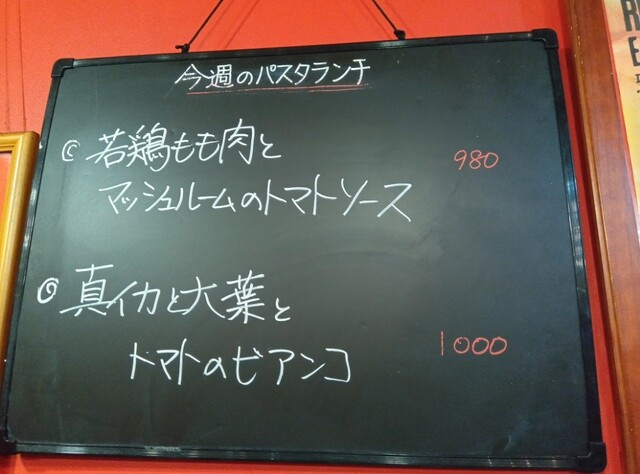 今週のパスタランチ
◎ 若鶏もも肉と 980
マッシュルームのトマトソース
◎ 真イカと大葉と
トマトのビアンコ 1000